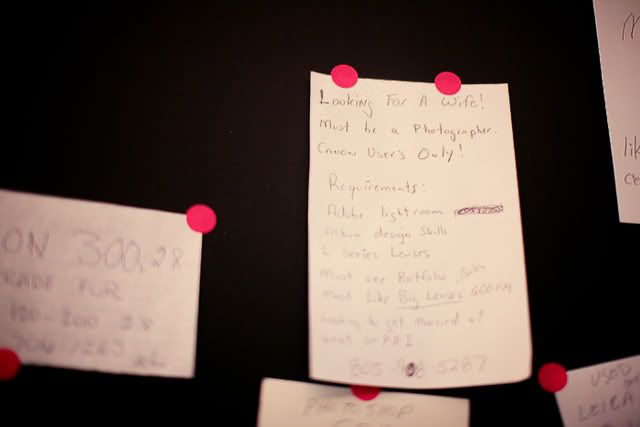 Looking For A Wife!
Must be a Photographer.
Canon User's Only!
Requirements:
Adobe lightroom
Album design Skills
L Series Lenses
Must see Portfolio,
Must Like Big Lenses 600mm
Looking to get Married at
ON 300, 28
TRADE FOR
28
PHOTOSHOP
USED
LEICA
M
lik
ce